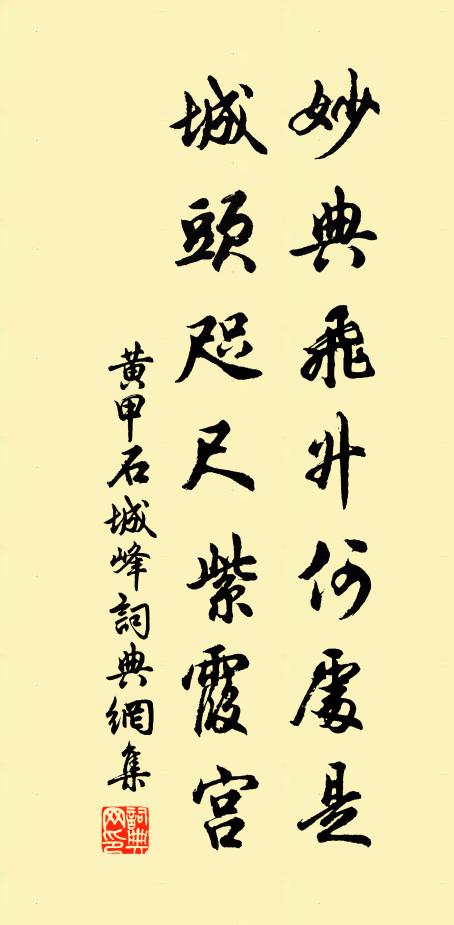 妙典飛升何處是
城頭咫尺紫霞宮
黄甲石城峰詞典網集
詞典网印